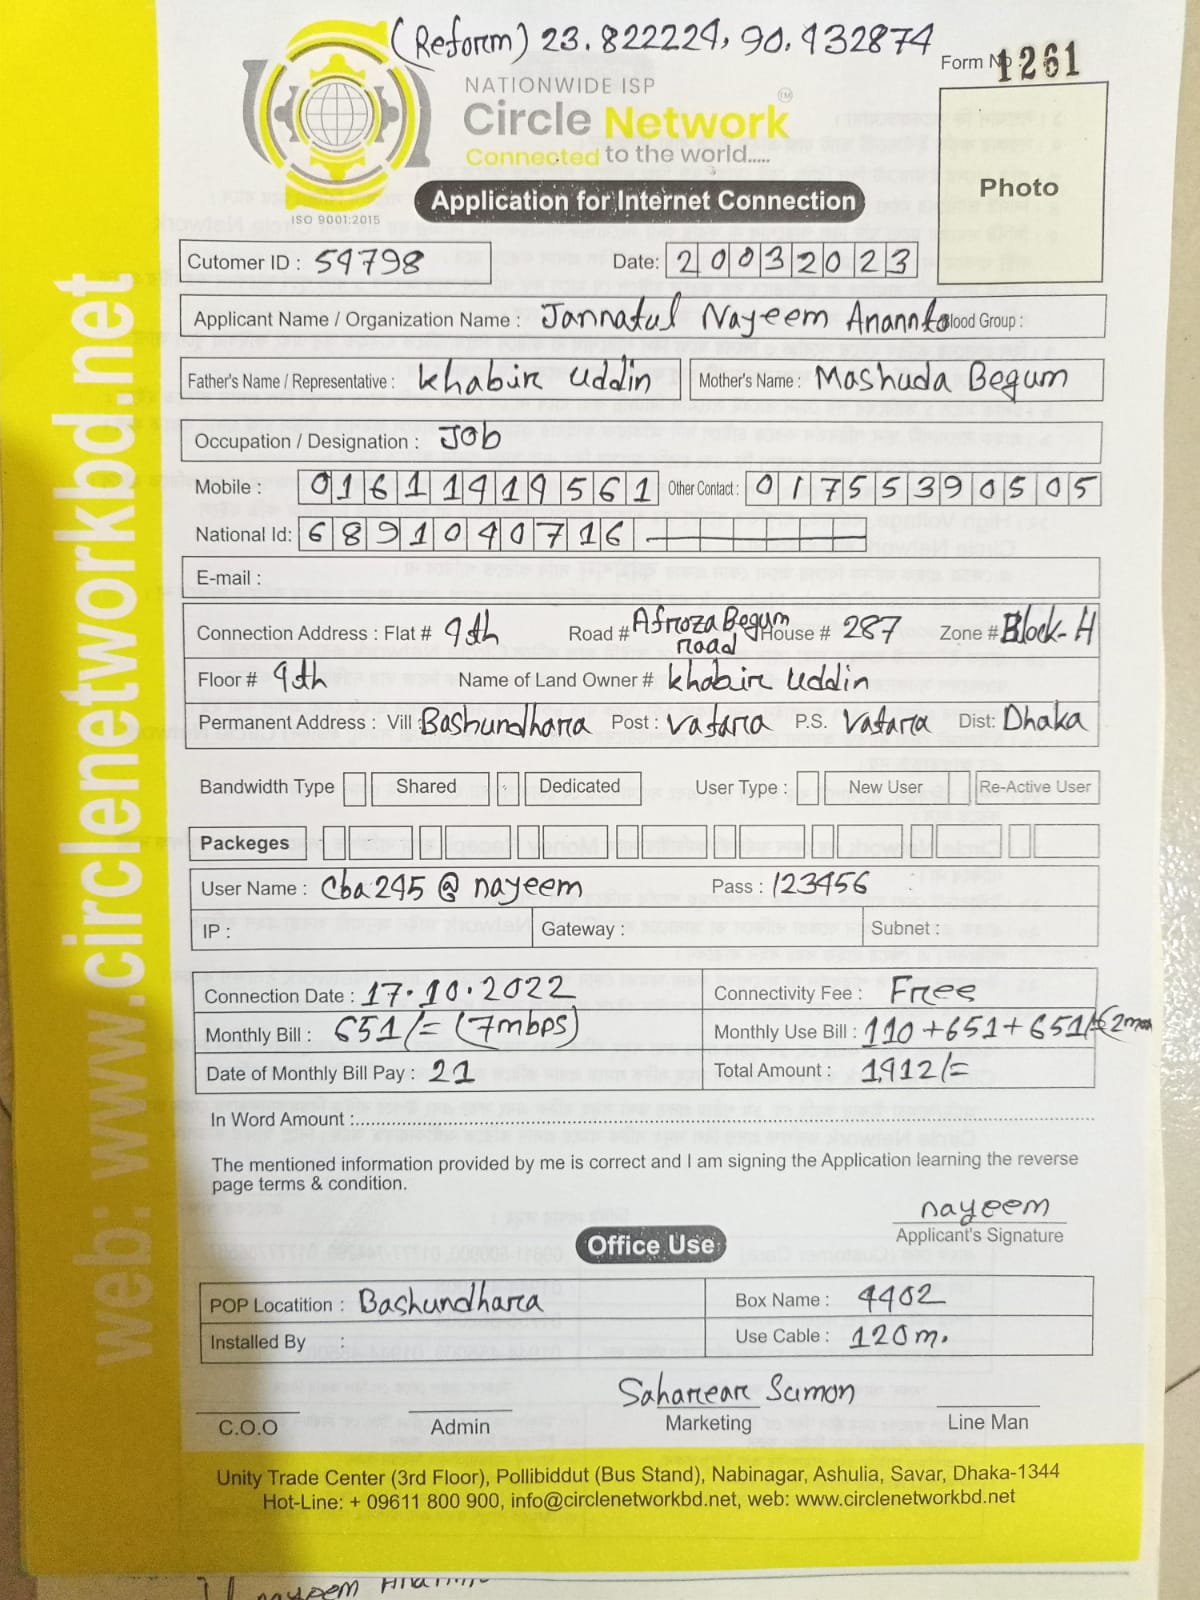 (Reform) 23.822224, 90.432874
Form No 1261
NATIONWIDE ISP
Circle Network TM
Connected to the world.....
ISO 9001:2015
Application for Internet Connection
Photo
Cutomer ID : 54798 Date: 20032023
Applicant Name / Organization Name : Jannatul Nayeem Anannto Blood Group :
Father's Name / Representative : Khabir Uddin Mother's Name : Mashuda Begum
Occupation / Designation : Job
Mobile : 01611419561 Other Contact : 01755390505
National Id: 6891040716
E-mail :
Connection Address : Flat # 9th Road # Afroza Begum road House # 287 Zone # Block-H
Floor # 9th Name of Land Owner # Khabir Uddin
Permanent Address : Vill : Bashundhara Post : Vatara P.S. Vatara Dist: Dhaka
Bandwidth Type Shared Dedicated User Type : New User Re-Active User
Packeges
User Name : Cba245@nayeem Pass : 123456
IP : Gateway : Subnet :
Connection Date : 17.10.2022 Connectivity Fee : Free
Monthly Bill : 651/= (7mbps) Monthly Use Bill : 110+651+651/=
Date of Monthly Bill Pay : 21 Total Amount : 1,912/=
In Word Amount :
The mentioned information provided by me is correct and I am signing the Application learning the reverse
page terms & condition.
nayeem
Applicant's Signature
Office Use
POP Locatition : Bashundhara Box Name : 4402
Installed By : Use Cable : 120m.
Saharear Sumon
C.O.O Admin Marketing Line Man
Unity Trade Center (3rd Floor), Pollibiddut (Bus Stand), Nabinagar, Ashulia, Savar, Dhaka-1344
Hot-Line: + 09611 800 900, info@circlenetworkbd.net, web: www.circlenetworkbd.net
web: www.circlenetworkbd.net
nayeem